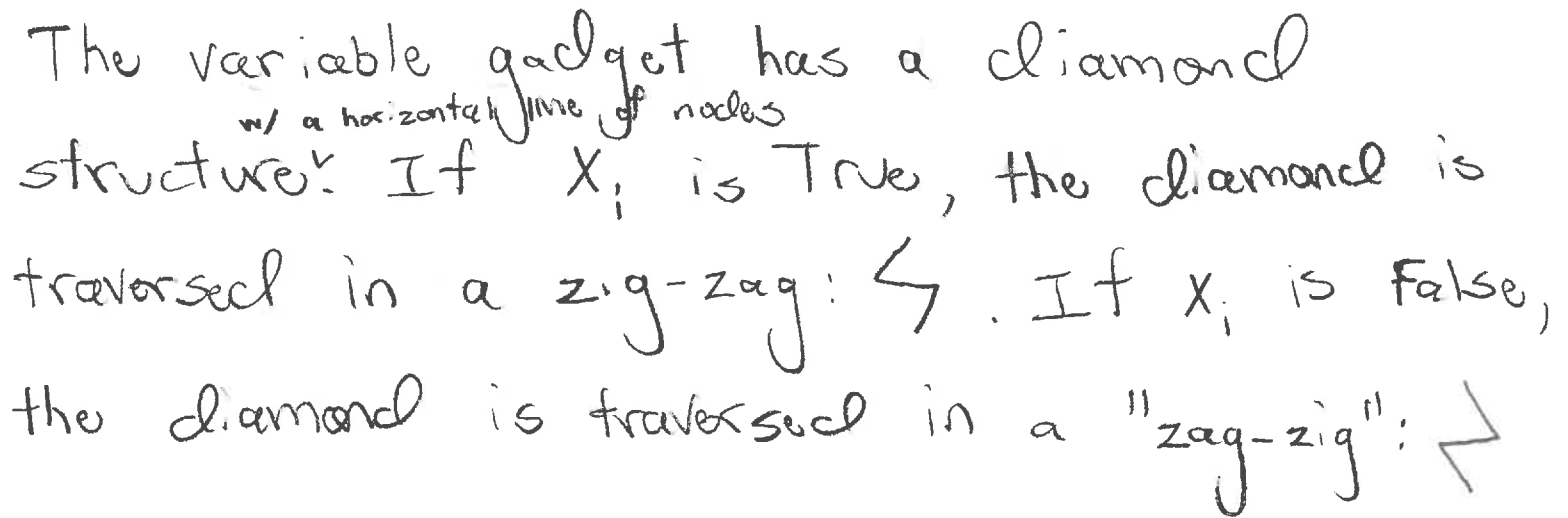 The variable gadget has a diamond
w/ a horizontal line of nodes
structure. If Xᵢ is True, the diamond is
traversed in a zig-zag: . If Xᵢ is False,
the diamond is traversed in a "zag-zig":